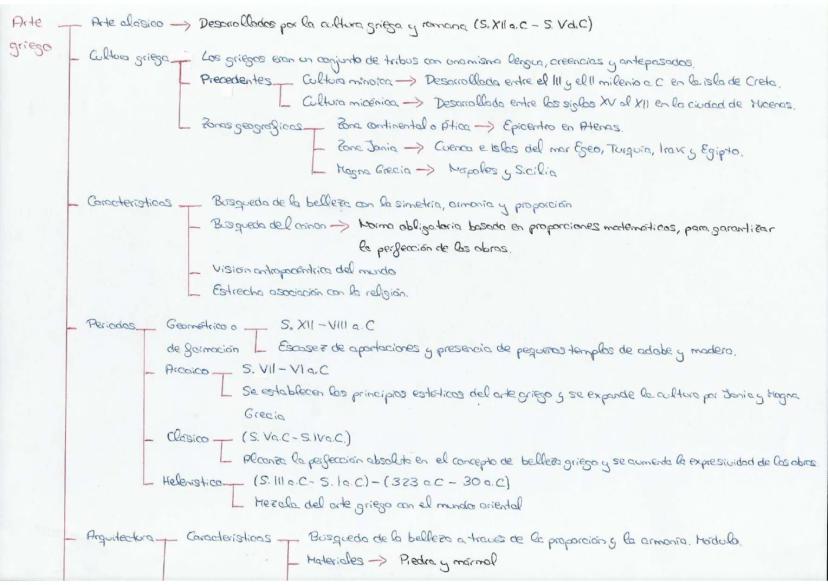 Arte griego
Arte clásico → Desarrollados por la cultura griega y romana (S. XII a.C - S. V d.C)
Cultura griega
Los griegos eran un conjunto de tribus con una misma lengua, creencias y antepasados.
Precedentes
Cultura minoica → Desarrollada entre el III y el II milenio a C en la isla de Creta.
Cultura micénica → Desarrollada entre los siglos XV al XII en la ciudad de Micenas.
Zonas geográficas
Zona continental o Ática → Epicentro en Atenas.
Zona Jonia → Cuenca e islas del mar Egeo, Turquía, Irak y Egipto.
Magna Grecia → Nápoles y Sicilia
Características
Búsqueda de la belleza con la simetría, armonía y proporción
Búsqueda del canon → Norma obligatoria basada en proporciones matemáticas, para garantizar
la perfección de las obras.
Visión antropocéntrica del mundo
Estrecha asociación con la religión.
Periodos
Geométrico o de formación
S. XII - VIII a.C
Escasez de aportaciones y presencia de pequeños templos de adobe y madera.
Arcaico
S. VII - VI a.C
Se establecen los principios estéticos del arte griego y se expande la cultura por Jonia y Magna
Grecia
Clásico
(S. V a.C - S. IV a.C.)
Alcanza la perfección absoluta en el concepto de belleza griego y se aumenta la expresividad de las obras
Helenística
(S. III a.C - S. I a.C) - (323 a.C - 30 a.C)
Mezcla del arte griego con el mundo oriental
Arquitectura
Características
Búsqueda de la belleza a través de la proporción y la armonía. Módulo.
Materiales → Piedra y mármol